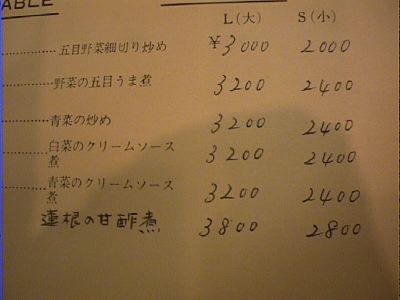 ABLE
L(大) S(小)
五目野菜細切り炒め ¥3000 2000
野菜の五目うま煮 3200 2400
青菜の炒め 3200 2400
白菜のクリームソース
煮 3200 2400
青菜のクリームソース
煮 3200 2400
蓮根の甘酢煮 3800 2800